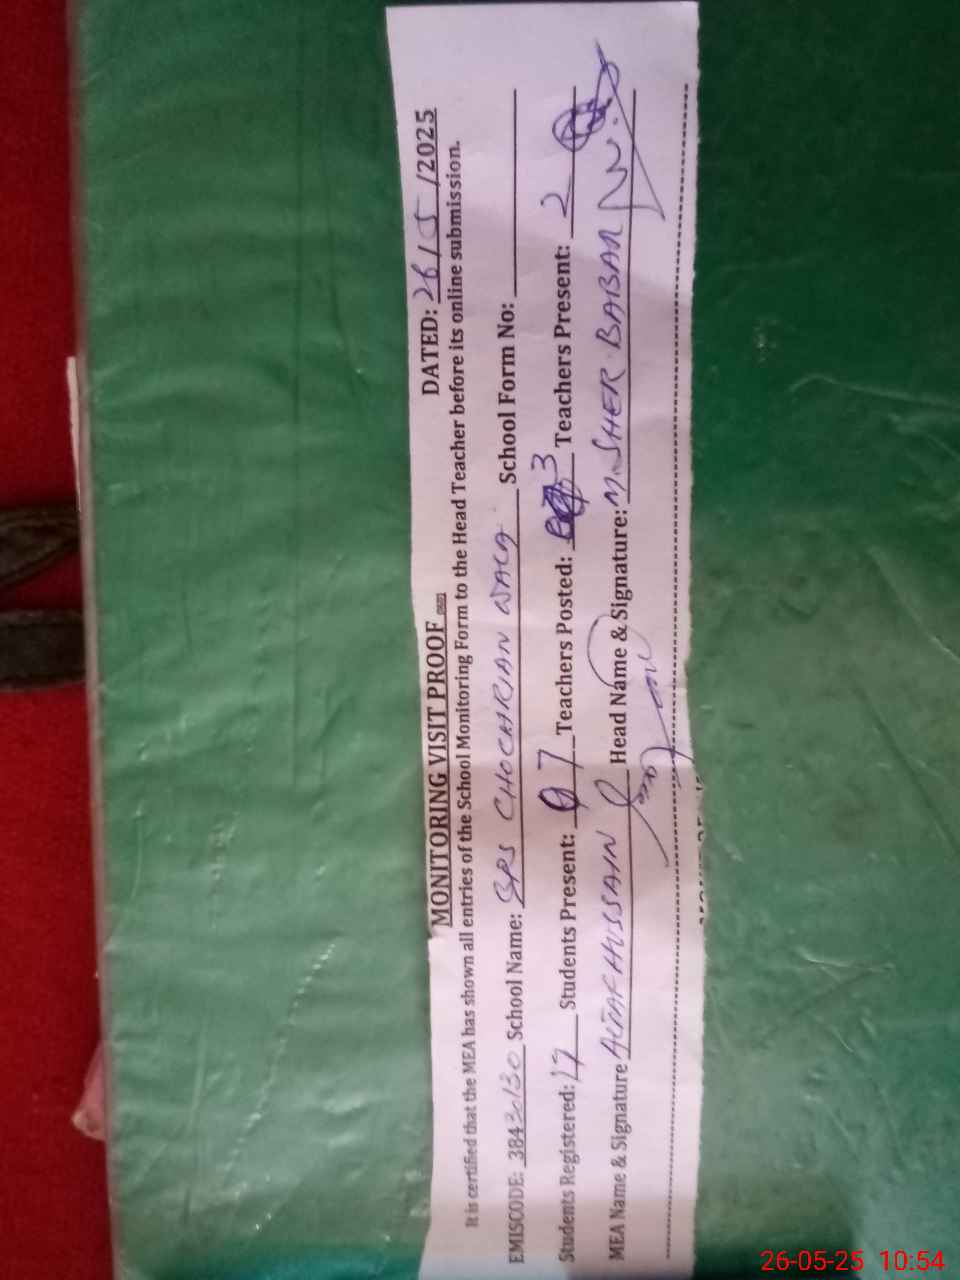 MONITORING VISIT PROOF DATED: 26/5/2025
It is certified that the MEA has shown all entries of the School Monitoring Form to the Head Teacher before its online submission.
EMISCODE: 38430130 School Name: GPS CHOCHRIAN WALA School Form No:
Students Registered: 17 Students Present: 07 Teachers Posted: 3 Teachers Present: 2
MEA Name & Signature ALTAF HUSSAIN Head Name & Signature: M. SHER BABAR
26-05-25 10:54